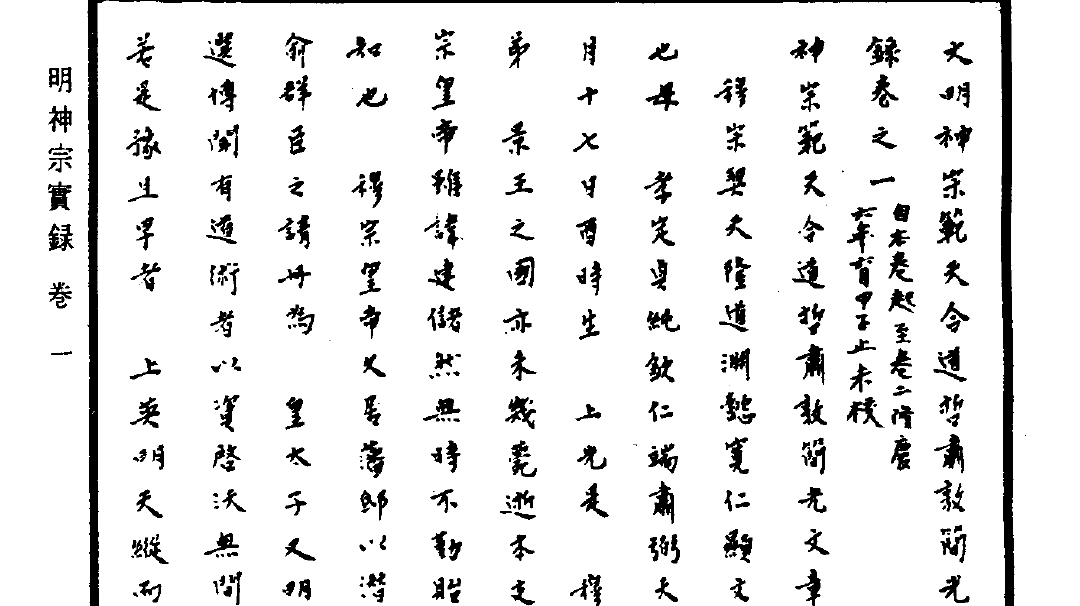 大明神宗範天合道哲肅敦簡光
錄卷之一
自本卷起至卷二隆慶
六年首甲子止未校
神宗範天合道哲肅敦簡光文章
穆宗契天隆道淵懿寬仁顯文
也母 孝定貞純欽仁端肅弼天
月十七日酉時生 上光是 穆
弟 景王之國亦未幾薨逝本支
宗皇帝雖諱建儲然無時不勤貽
知也 穆宗皇帝久居藩邸以潛
俞群臣之請冊為 皇太子又明
選博聞有道術者以資啓沃無間
若是豫且早者 上英明天縱而
明神宗實録 卷一